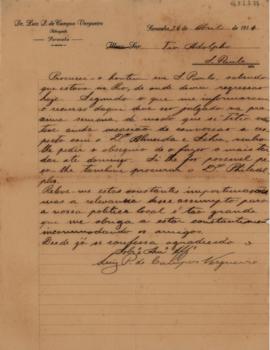 Dr. Luiz P. de Campos Vergueiro
Advogado
Sorocaba
Sorocaba, 26 de Abril de 1914
Illmo. Snr. Tio Adolpho
S. Paulo
Procurei-o hontem em S. Paulo, sabendo
que estava no Rio, de onde devia regressar
hoje. Segundo o que me informaram
o recurso daqui deve ser julgado na pro
xima semana, de modo que si Tito
ainda occasião de conversar a res
peito com o Dr. Almeida e Silva, venho
lhe pedir o obsequio de o fazer o mais tar
dar até domingo. Si lhe for possivel pe
ço-lhe tambem procurar o Dr. Philadel
pho.
Releve-me estas constantes importunações
mas a relevancia desse assumpto para
a nossa politica local é tão grande
que me obriga a estar constantemente
incommodando os amigos.
Desde já se confessa agradecido
Luiz P. de Campos Vergueiro